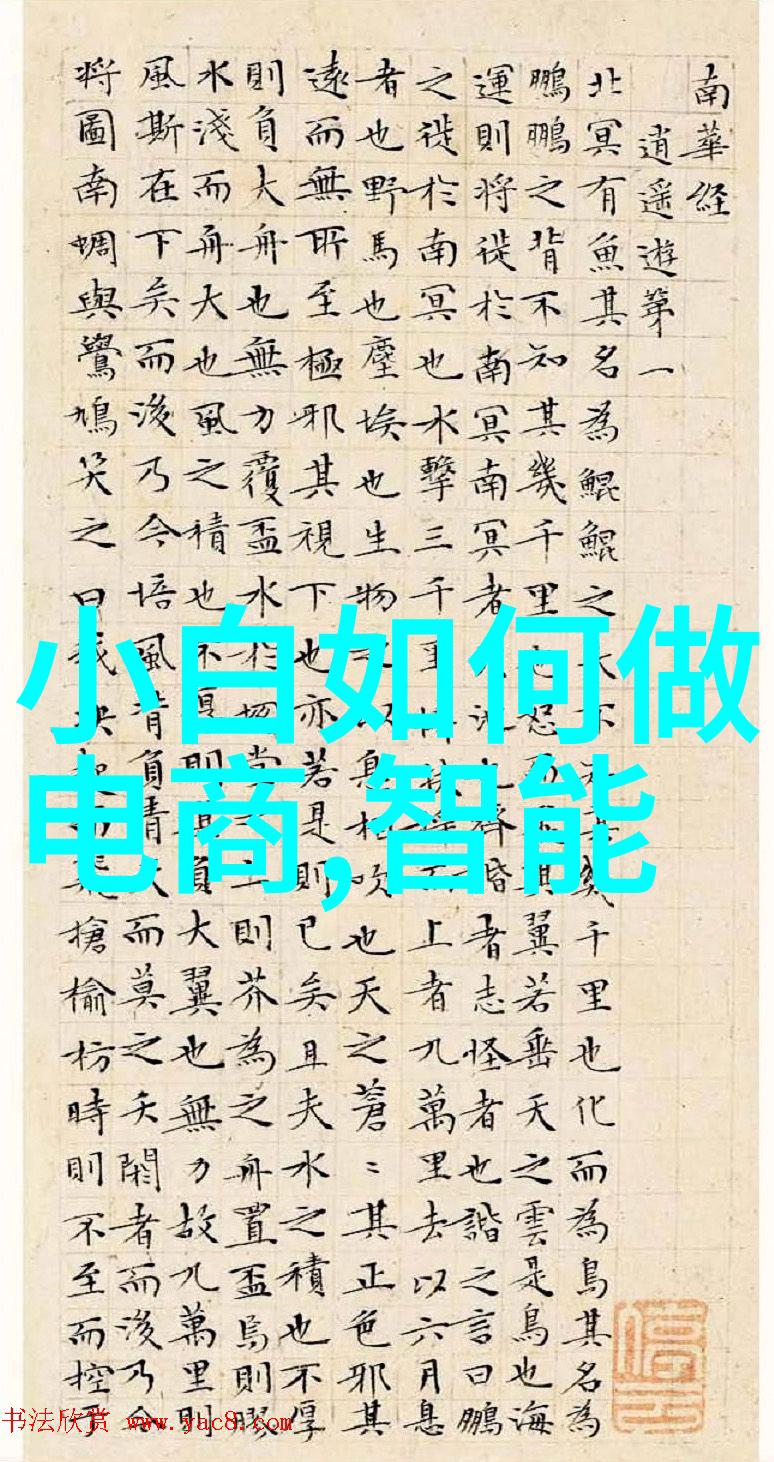 南華経
逍遥遊第一
北冥有魚其名為鯤鯤之大不知其幾千里也化而為鳥其名為
鵬鵬之背不知其幾千里也怒而其翼若垂天之雲是鳥也海
運則将徙於南冥南冥者池也齊諧者志怪者也諧之言曰鵬
之徙於南冥也水擊三千里扶而上者九萬里去以六月息
者也野馬也塵埃也生物之以息相吹也天之蒼〻其正色邪其
遠而無所至極邪其視下也亦若是則已矣且夫水之積也不厚
則負大舟也無力覆盃水於坳堂之上則芥為之舟置盃焉則膠
水淺而舟大也風之積也不厚則其負大翼也無力故九萬里則
風斯在下矣而後乃今培風背負青天而莫之夭閼者而後乃今
将圖南蜩與鷽鳩笑之曰我決起而飛搶榆枋時則不至而控於
小自如何做
电商,智能
书法欣赏 www.yac8.com